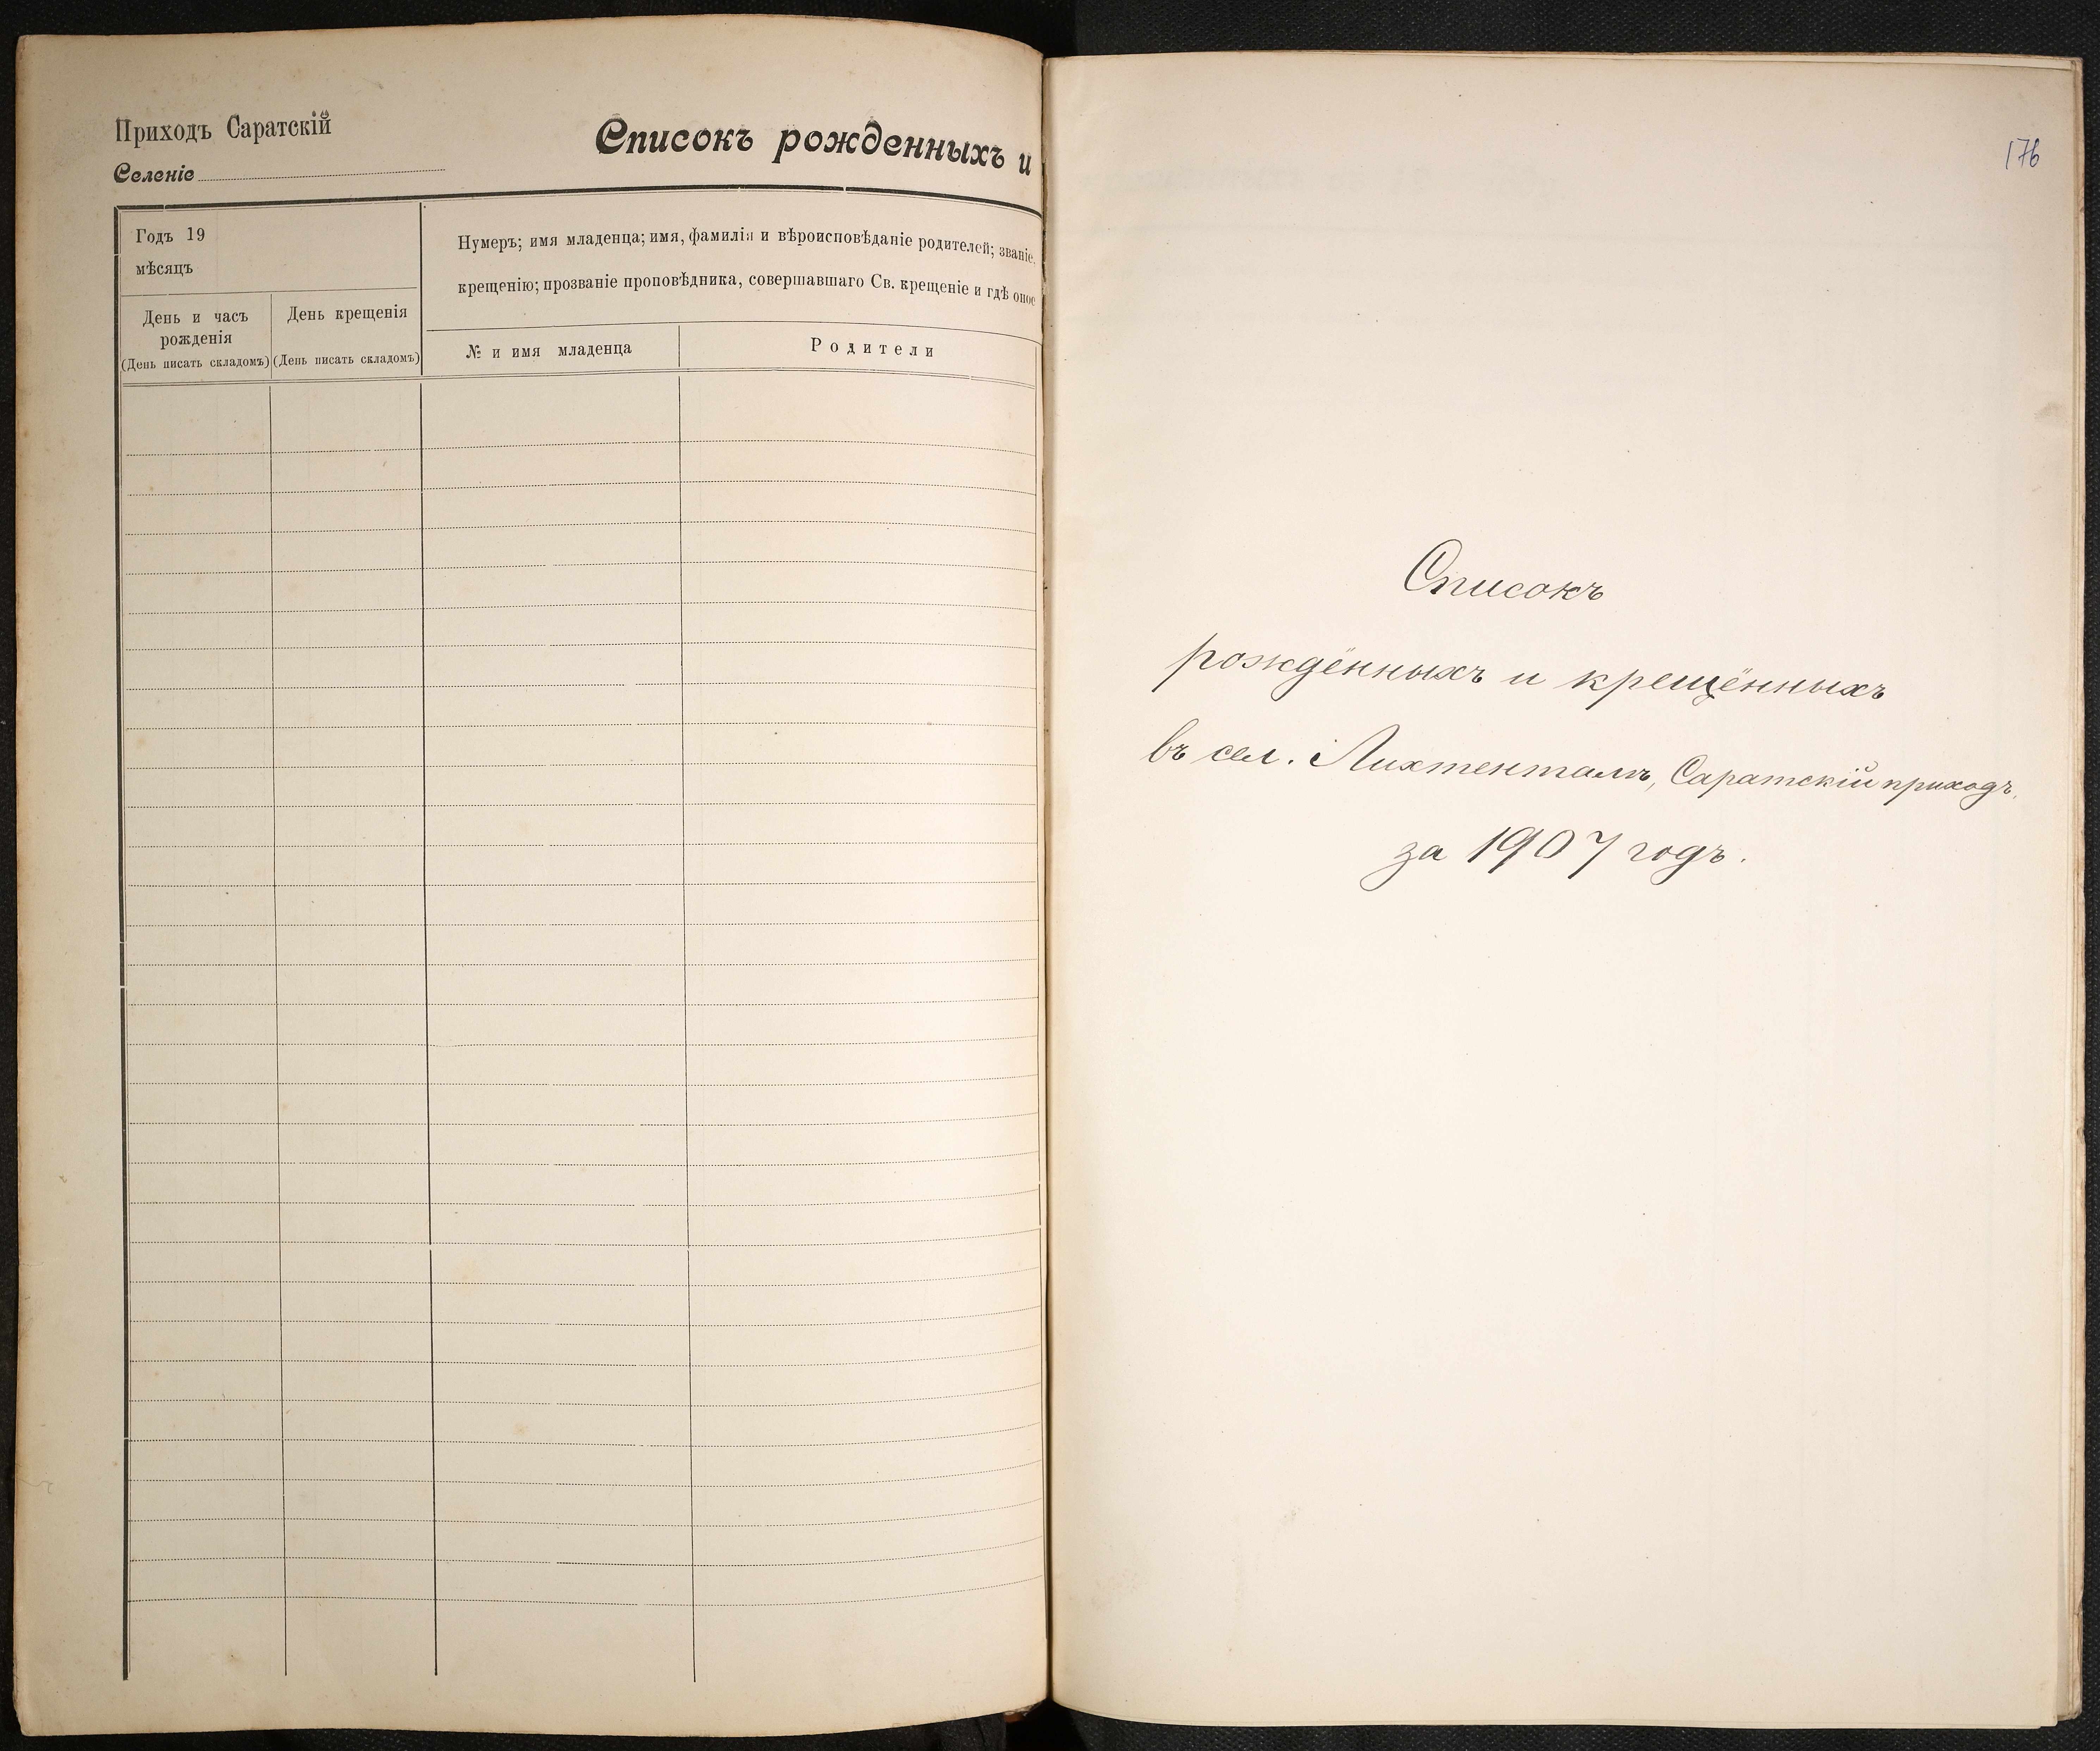 Приходъ Саратскій
Селеніе
Списокъ рожденныхъ и
Годъ 19
мѣсяцъ
День и часъ
рожденія
(День писать складомъ)
День крещенія
(День писать складомъ)
Нумеръ; имя младенца; имя, фамилія и вѣроисповѣданіе родителей; званіе,
крещенію; прозваніе проповѣдника, совершавшаго Св. крещеніе и гдѣ оное
№ и имя младенца
Родители
176
Списокъ
рождённыхъ и крещённыхъ
въ сел. Лихтенталь, Саратскій приходъ,
за 1907 годъ.